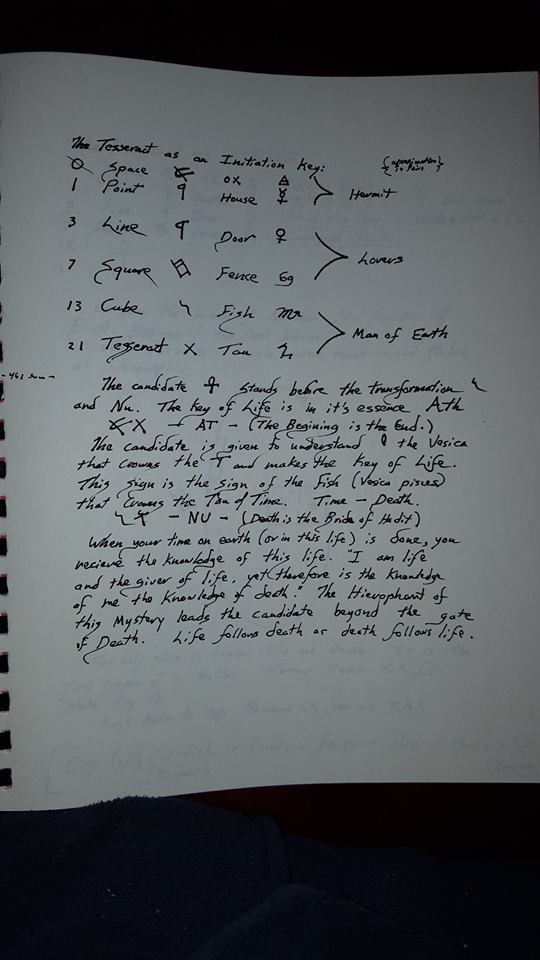 The Tesseract as an Initiation Key:
0 Space ox
1 Point House Hermit
3 Line Door ♀
Lovers
7 Square Fence
13 Cube Fish
Man of Earth
21 Tesseract X Tau
- 461 sum -
The candidate ☥ stands before the transformation
and Nu. The Key of Life is in it's essence Ath
X → AT - (The Begining is the End.)
The candidate is given to understand the Vesica
that crowns the T and makes the Key of Life.
This sign is the sign of the Fish (Vesica pisces)
that crowns the Tau of Time. Time - Death.
- NU - (Death is the Bride of Hadit)
When your time on earth (or in this life) is done, you
recieve the Knowledge of this life. "I am life
and the giver of life, yet therefore is the Knowledge
of me the Knowledge of death." The Hierophant of
this Mystery leads the candidate beyond the gate
of Death. Life follows death as death follows life.